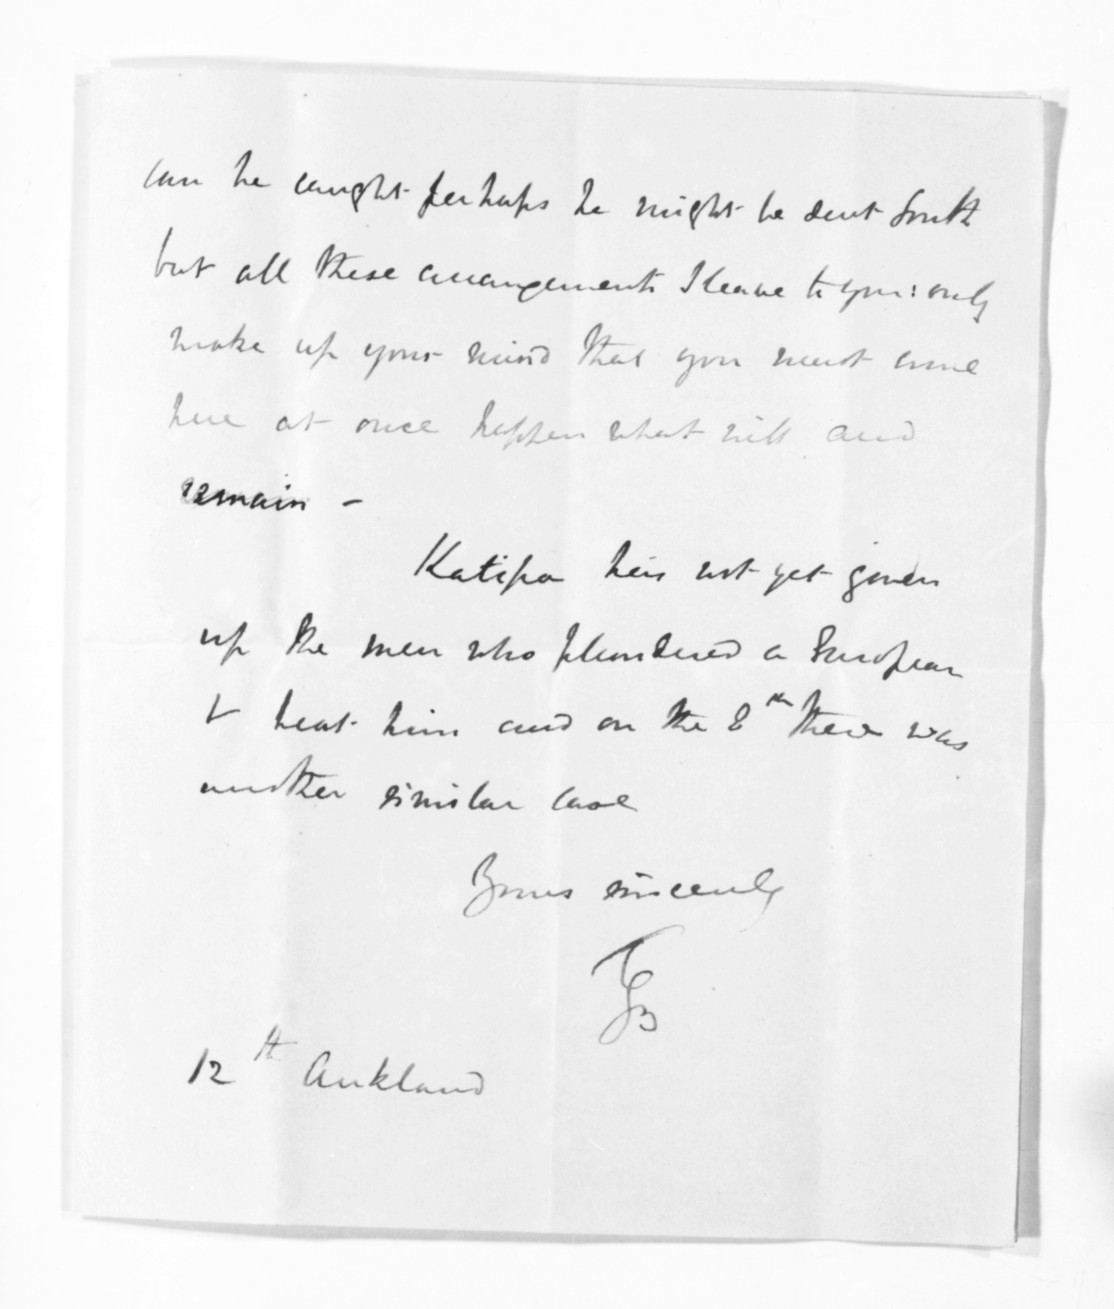 can be caught perhaps he might be sent South
but all these arrangements I leave to you: only
make up your mind that you must come
here at once happen what will and
remain -
Katipa has not yet given
up the men who plundered a European
& beat him and on the 8th there was
another similar case
Yours sincerely
TGB
12th Aukland